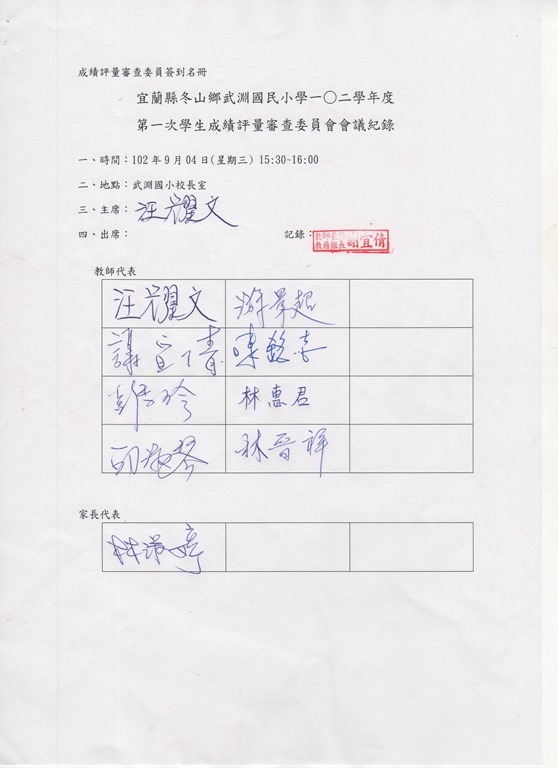 成績評量審查委員簽到名冊
宜蘭縣冬山鄉武淵國民小學一〇二學年度
第一次學生成績評量審查委員會會議紀錄
一、時間：102 年 9 月 04 日(星期三) 15:30~16:00
二、地點：武淵國小校長室
三、主席：汪耀文
四、出席： 記錄：
教務組長 謝宜倩
教師代表
汪耀文 游景超
謝宜倩 陳
彭 玲 林惠君
邱 琴 林晉祥
家長代表
林 婷